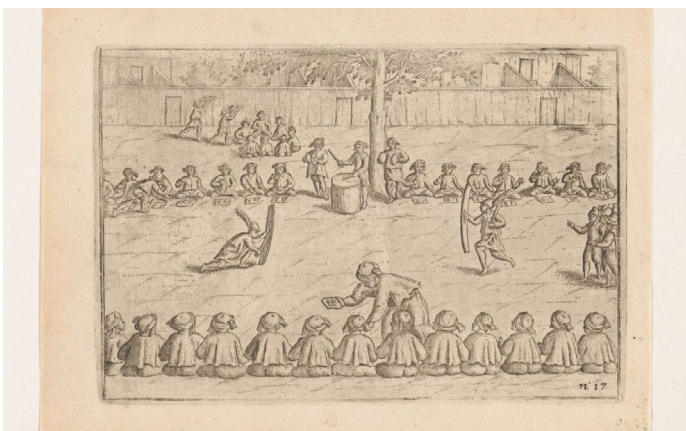 n.° 17